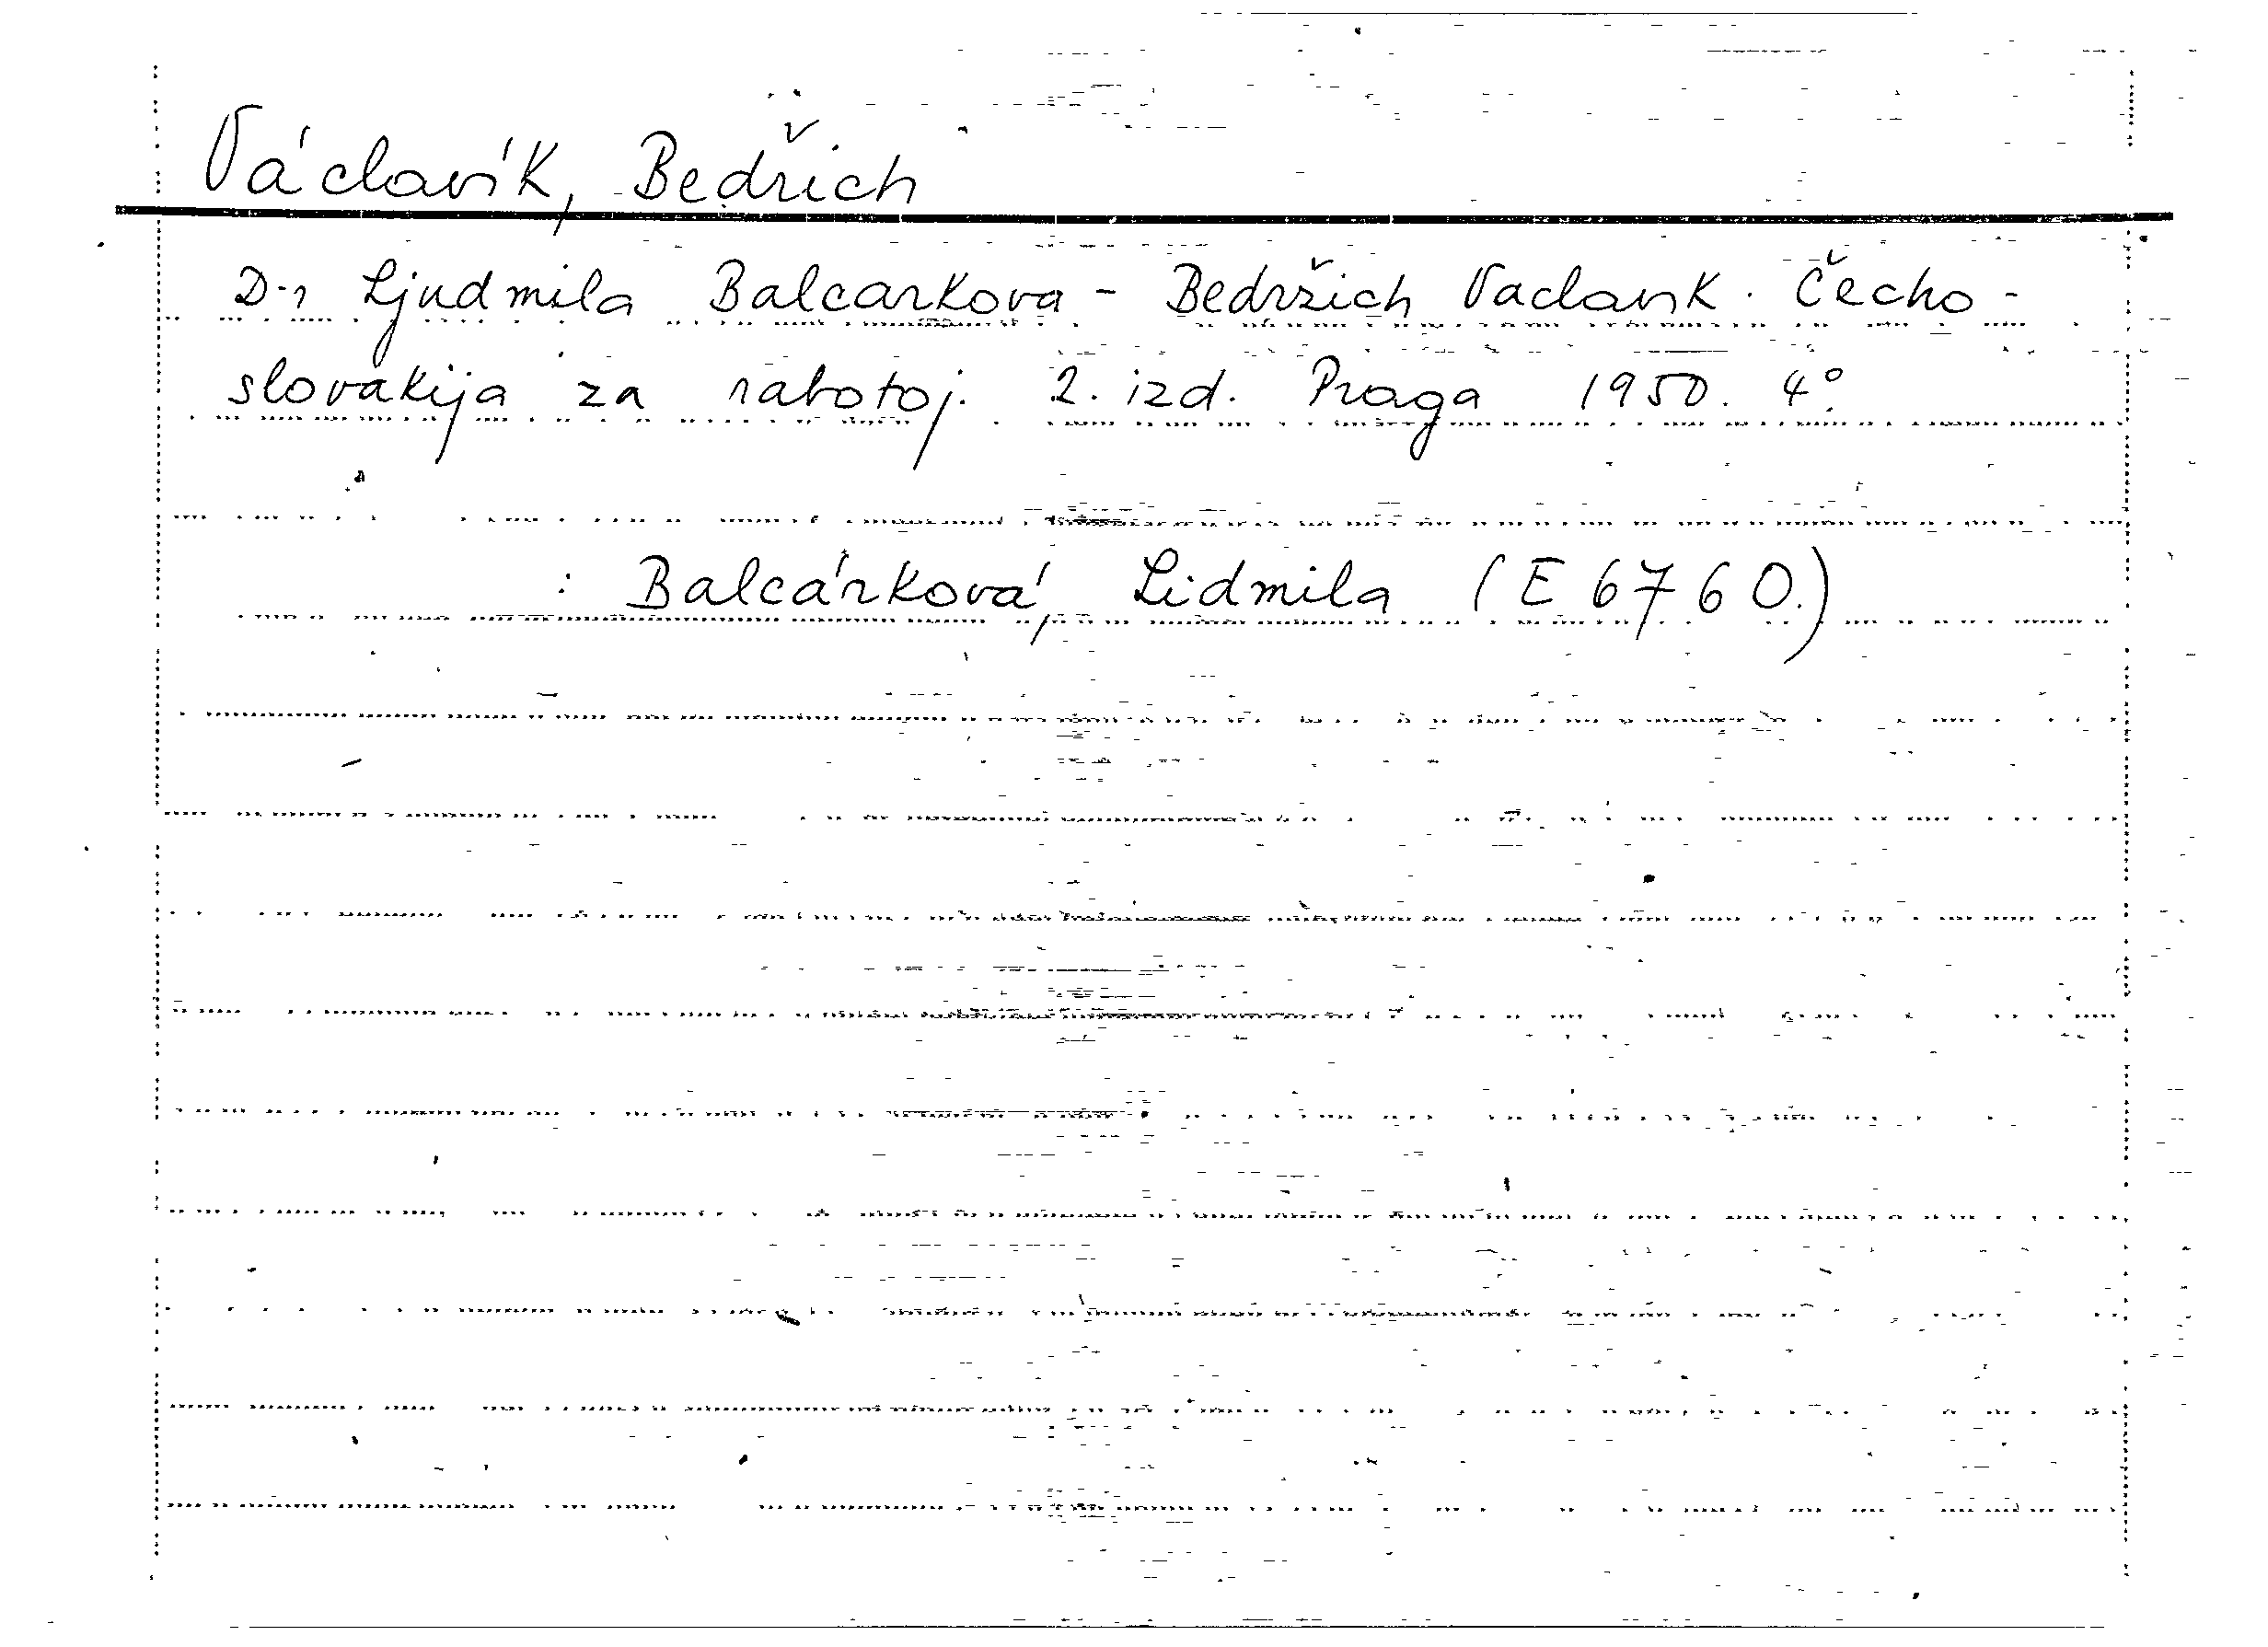 Václavík, Bedřich
D-r Ljudmila Balcarkova - Bedržich Vaclavik. Čecho-
slovakija za rabotoj. 2. izd. Praga 1950. 4°.
: Balcárková, Lidmila (E 6760.)